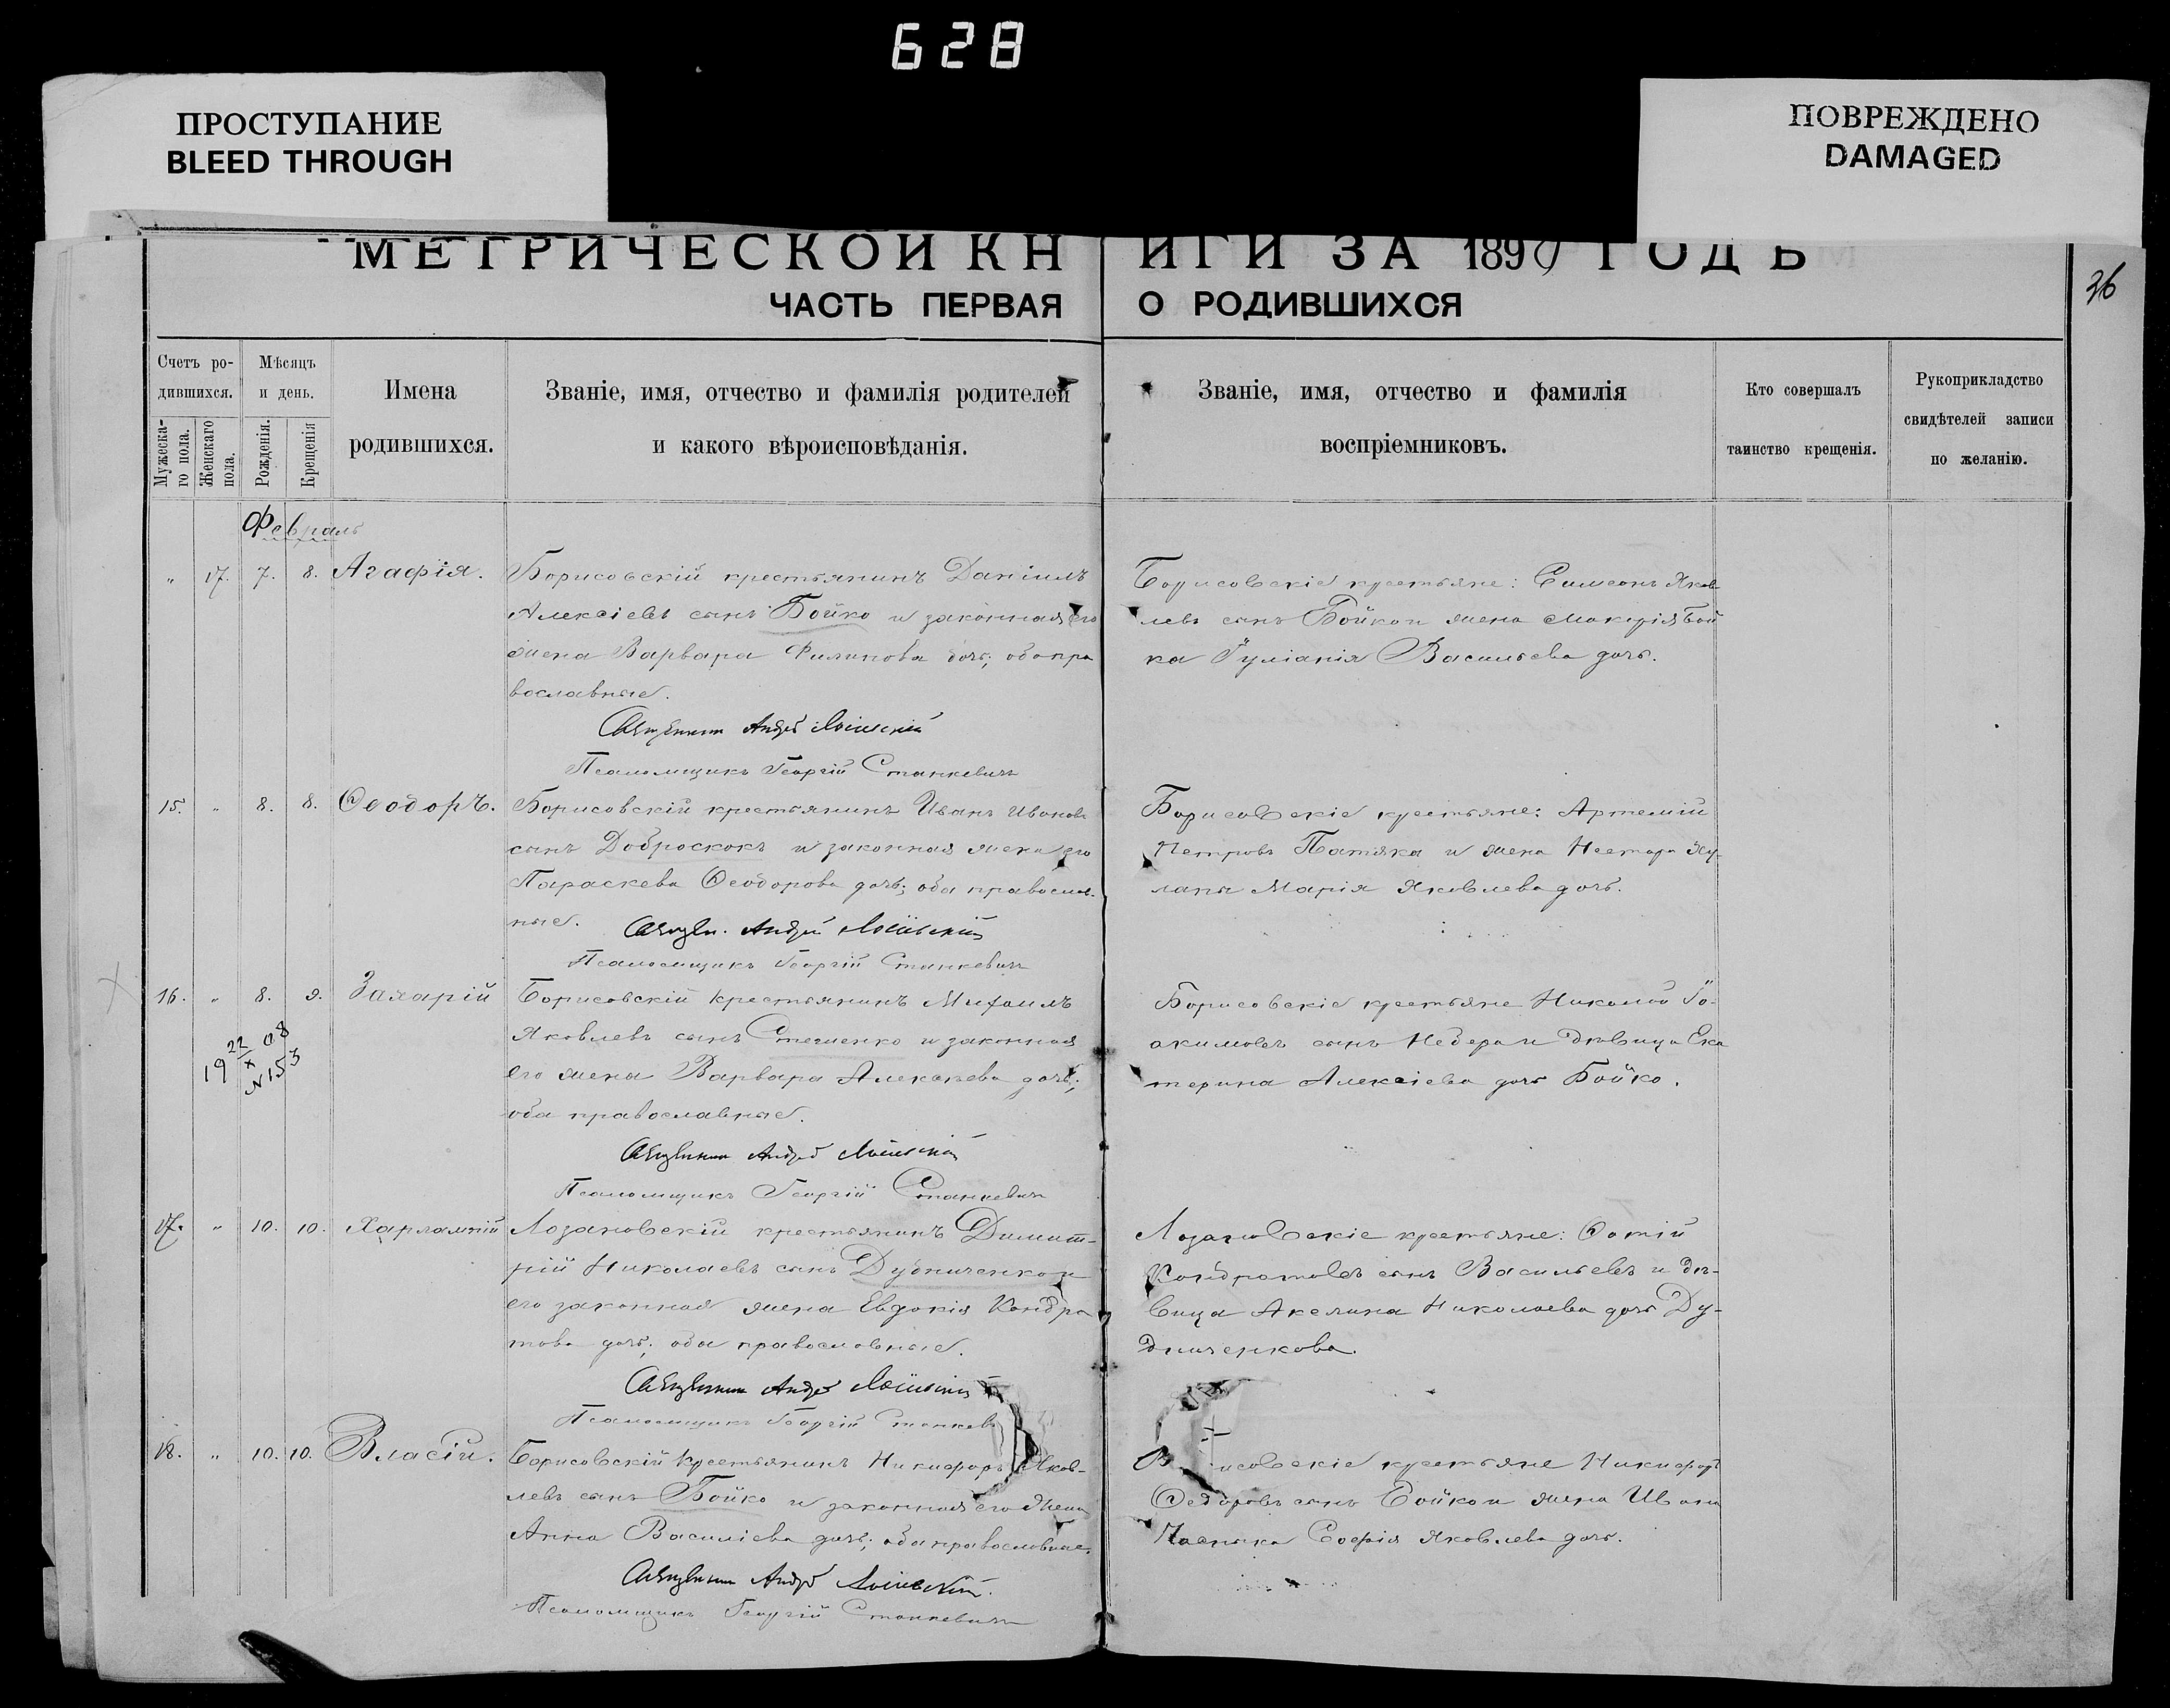 628
ПРОСТУПАНИЕ
BLEED THROUGH
ПОВРЕЖДЕНО
DAMAGED
МЕТРИЧЕСКОЙ КНИГИ ЗА 1890 ГОДЪ
36
ЧАСТЬ ПЕРВАЯ О РОДИВШИХСЯ
Счетъ ро-
дившихся.
Мужеска-
го пола.
Женскаго
пола.
Мѣсяцъ
и день.
Рожденія.
Крещенія
Имена
родившихся.
Званіе, имя, отчество и фамилія родителей
и какого вѣроисповѣданія.
Званіе, имя, отчество и фамилія
воспріемниковъ.
Кто совершалъ
таинство крещенія.
Рукоприкладство
свидѣтелей записи
по желанію.
Февраль
" 17. 7. 8. Агафія.
Борисовскій крестьянинъ Даніилъ
Алексіевъ сынъ Бойко и законная его
жена Варвара Филипова дочь; оба пра
вославные.
Священникъ Андрей
Псаломщикъ Георгій Станкевичъ
Борисовскіе крестьяне: Симеонъ Яков
левъ сынъ Бойко и жена Бой
ка Іуліанія Васильева дочь.
15. " 8. 8. Ѳеодоръ.
Борисовскій крестьянинъ Иванъ Ивановъ
сынъ Доброскокъ и законная жена его
Параскева Ѳеодорова дочь; оба православ-
ные.
Священ. Андрей
Псаломщикъ Георгій Станкевичъ
Борисовскіе крестьяне: Артемій
Петровъ и жена Нестора
Марія Яковлева дочь.
16. " 8. 9. Захарій
19 22/X 08
N153
Борисовскій крестьянинъ Михаилъ
Яковлевъ сынъ и законная
его жена Варвара Алексѣева дочь;
оба православные.
Священникъ Андрей
Псаломщикъ Георгій Станкевичъ
Борисовскіе крестьяне Николай Іо-
акимовъ сынъ и дѣвица Ека
терина Алексіева дочь Бойко.
17. " 10. 10. Харлампій
Лозановскій крестьянинъ Димит-
рій Николаевъ сынъ Дудниченко и
его законная жена Евдокія Кондра
това дочь; оба православные.
Священникъ Андрей
Псаломщикъ Георгій Станкев
Лозановскіе крестьяне: Фотій
Кондратовъ сынъ Васильевъ и дѣ-
вица Акелина Николаева дочь Ду-
дниченкова.
18. " 10. 10. Власій.
Борисовскій крестьянинъ Никифоръ Яков-
левъ сынъ Бойко и законная его жена
Анна Василіева дочь; оба православные.
Священникъ Андрей
Псаломщикъ Георгій Станкевичъ
исовскіе крестьяне Никифоръ
Ѳедоровъ сынъ Бойко и жена Ивана
Софія Яковлева дочь.